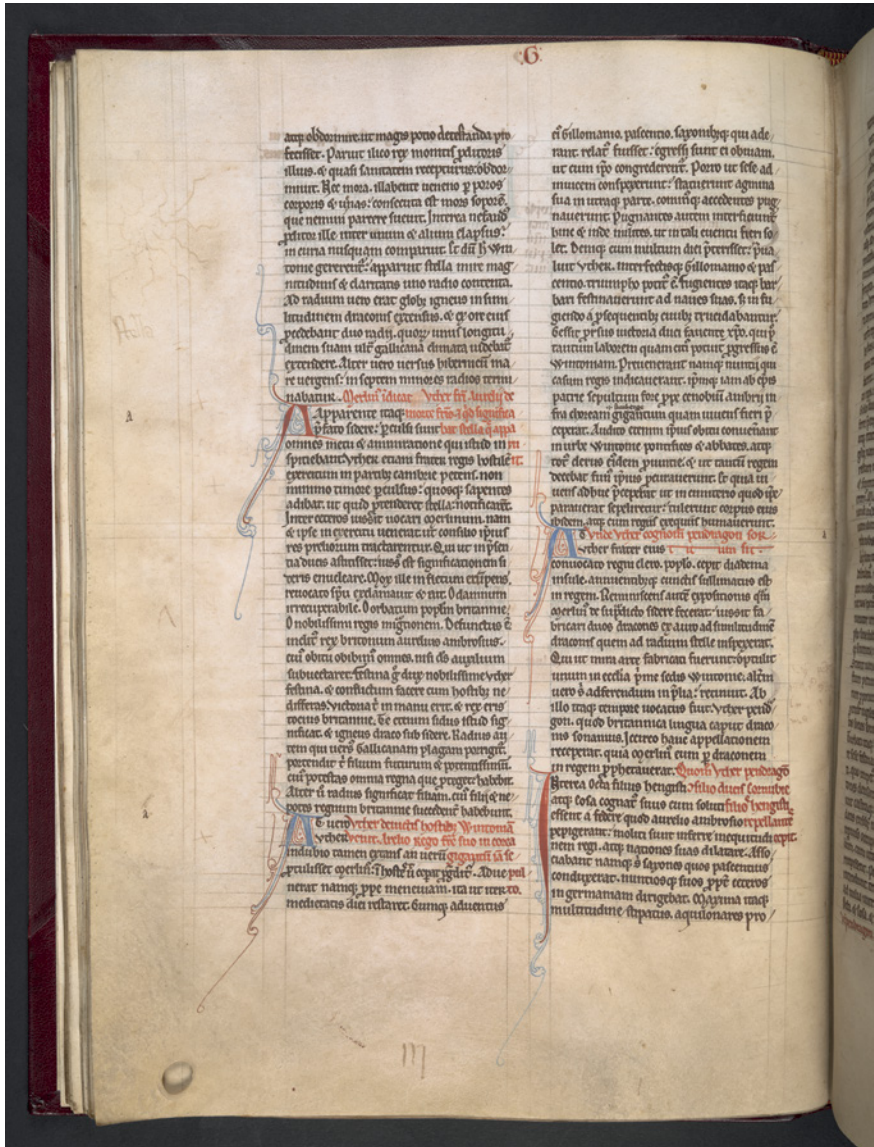 G
atq; obdormire. ut magis potio detestanda pro
fecisset. Paruit ilico rex monitis pditoris
illius. & quasi sanitatem recepturus: obdor
miuit. Nec mora. illabente ueneno p poros
corporis & uenas: consecuta est mors soporē.
que nemini parcere sueuit. Interea nefand
pditor ille inter unum & alium elapsus:
in curia nusquam comparuit. Win
tonie apparuit stella mire mag
nitudinis & claritatis uno radio contenta.
Ad radium uero erat globꝰ igneus in simi
litudinem draconis extensus. & ex ore eius
pcedebant duo radii. quoꝝ unus longitu
dinem suam ult gallicana climata uidebat
extendere. Alter uero versus hibernicū ma
re vergens: in septem minores radios termi
nabatur. Merlinꝰ Vther frī aurelii de
Apparente itaq; morte significa
pfato sidere: pculsi sunt stella
omnes metu & ammiratione qui istud in
spiciebant. Vther etiam frater regis hostilē
exercitum in partibꝰ cambrie petens. non
minimo timore pculsus: quosq; sapientes
adibat. ut quid ptenderet stella: notificarēt.
Inter ceteros iussit uocari merlinum. nam
& ipse in exercitu uenerat. ut consilio ipsius
res preliorum tractarentur. Qui ut in psen
tia ducis astitisset: iussꝰ est significationem si
deris enucleare. Mox ille in fletum erūpens.
reuocato spū exclamauit & ait. O damnum
irrecuperabile. O orbatum popłm britannie.
O nobilissimi regis migrationem. Defunctus ē
inclitꝰ rex britonum aurelius ambrosius.
cuī obitu obibimꝰ omnes. nisi ds auxilium
subuectaret. festina g dux nobilissime vther
festina. & conflictum facere cum hostibꝰ ne
differas. victoria t in manu erit. & rex eris
totius britannie. Te etenim sidus istud sig
nificat. & igneus draco sub sidere. Radius au
tem qui uersꝰ Gallicanam plagam porrigit.
portendit t filium futurum & potentissimū.
cuī potestas omnia regna que proteget habebit.
Alter ū radius significat filiam. cuī filii & ne
potes regnum britannie succedent habebunt.
At uero Vther deuictis hostibꝰ Wintoniā
vther uenit. Aurelio rege frē suo in corea
indubio tamen extans an uerū gigantū
ptulisset merlin: in hostē ū cepit pgdit. Adue
nerat namq; ppe meneuiam. ita ut iter
medietatis diei restaret. Cumq; aduentus
eī Gillomanio. pascentio. saxonibꝰq; qui ade
rant. relat fuisset: egressi sunt ei obuiam.
ut cum ipo congrederent. Porro ut sese ad
inuicem conspexerunt: statuerunt agmina
sua in utraq; parte. cominꝰq; accedentes pug
nauerunt. Pugnantes autem interficiunt
hinc & inde milites. ut in tali euentu fieri so
let. Deniq; cum multum diei pterisset: pua
luit vther. interfectisq; Gillomanio & pas
centio. triumpho potit ē. fugientes itaq; bar
bari festinauerunt ad naues suas. s in fu
giendo a psequentibꝰ ciuibꝰ trucidabantur.
Cessit prsus uictoria duci fauente xpo. qui p
tantum laborem quam citi potuit pgressus ē
Wintoniam. Preuenerant namq; nuntii qui
casum regis indicauerant. ipmq; iam ab epis
patrie sepultum fore ppe cenobiū ambrii in
fra choream gigantum quam uiuens fieri p
ceperat. Audito etenim ipsius obitu conuenerant
in urbe Wintonie pontifices & abbates. atq;
totꝰ clerus eiꝰdem puincie. & ut tantum regem
decebat funꝰ ipius pcurauerunt. Et quia ui
uens adhuc pceperat ut in cimiterio quod ipe
parauerat sepeliretur: tulerunt corpus eius
ibidem. atq; cum regiis exequiis humauerunt.
At Vnde vther cognom pendragon sor
vther frater eius
conuocato regni clero. poplo. cepit diadema
insule. annuentibusq; cunctis sullimatus est
in regem. Reminiscens autē expositionis quā
merlinꝰ de supdicto sidere fecerat: iussit fa
bricari duos dracones ex auro ad similitudinē
draconis quem ad radium stelle inspexerat.
Qui ut mira arte fabricati fuerunt: optulit
unum in ecclia pme sedis Wintonie. altm
uero s adferendum in plia: retinuit. Ab
illo itaq; tempore uocatus fuit vther pend
gon. quod britannica lingua caput draco
nis sonamus. Icirco hanc appellationem
receperat. quia merlinꝰ eum p draconem
in regem pphetauerat. Quom Vther pendragō
Interea Octa filius hengisti filio ducis Cornubie
atq; Cosa cognatꝰ suus cum soluti filio hengisti
essent a federe quod aurelio ambrosio repellante
pepigerant: moliti sunt inferre inquietudi cepit.
nem regi. atq; nationes suas dilatare. Asso
ciabant namq; s saxones quos pascentius
conduxerat. nuntiosq; suos ppt ceteros
in germaniam dirigebat. Maxima itaq;
multitudine stipatus. aquilonares pro